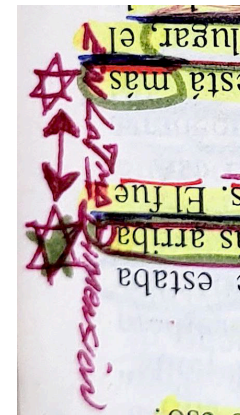 estaba
arriba
El fue
está más
lugar, el
La 7ma Dimensión